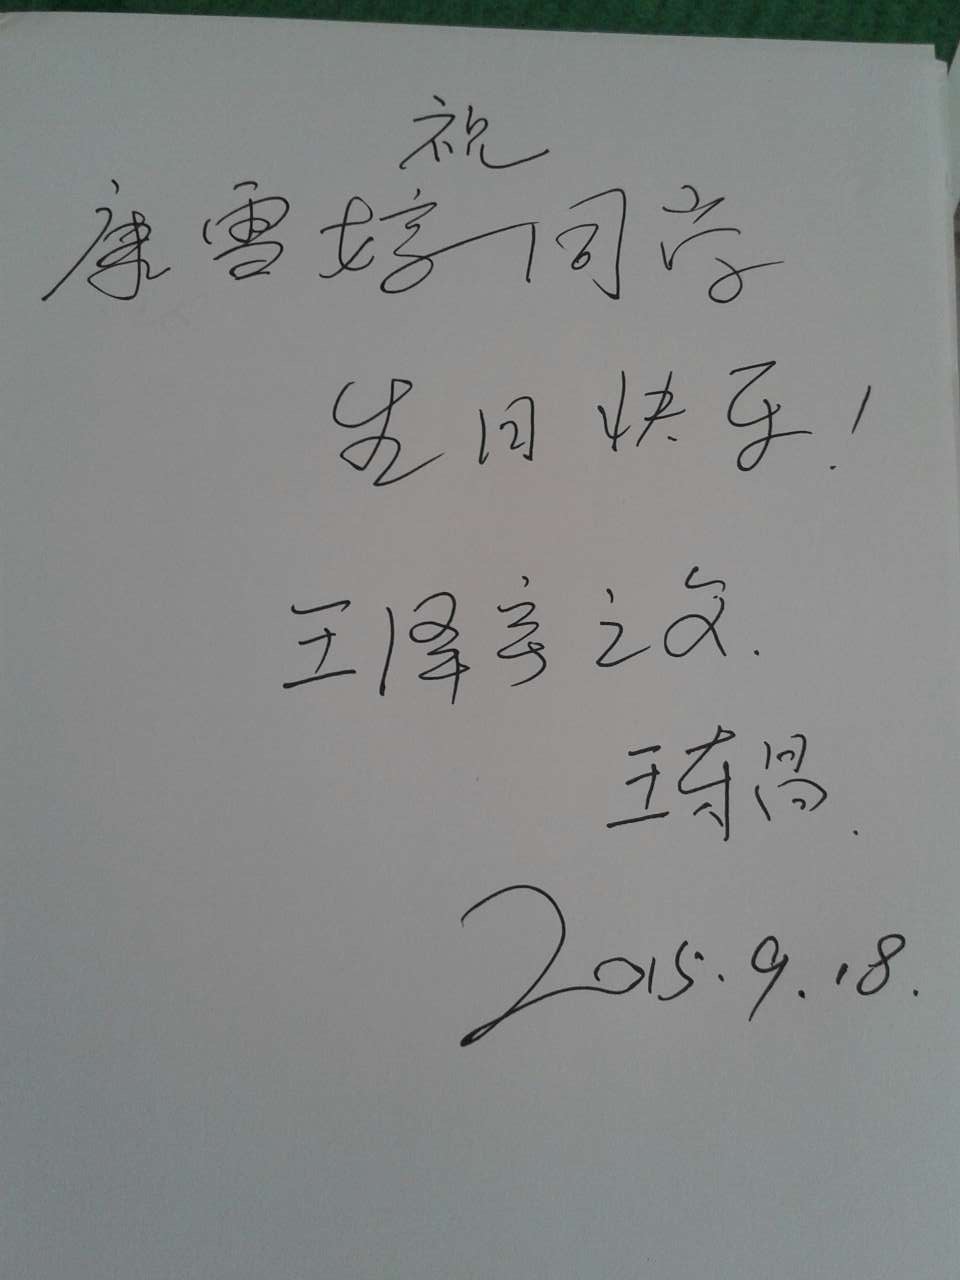 祝
康雪婷同学
生日快乐!
王泽宇之父.
王寿昌.
2015.9.18.